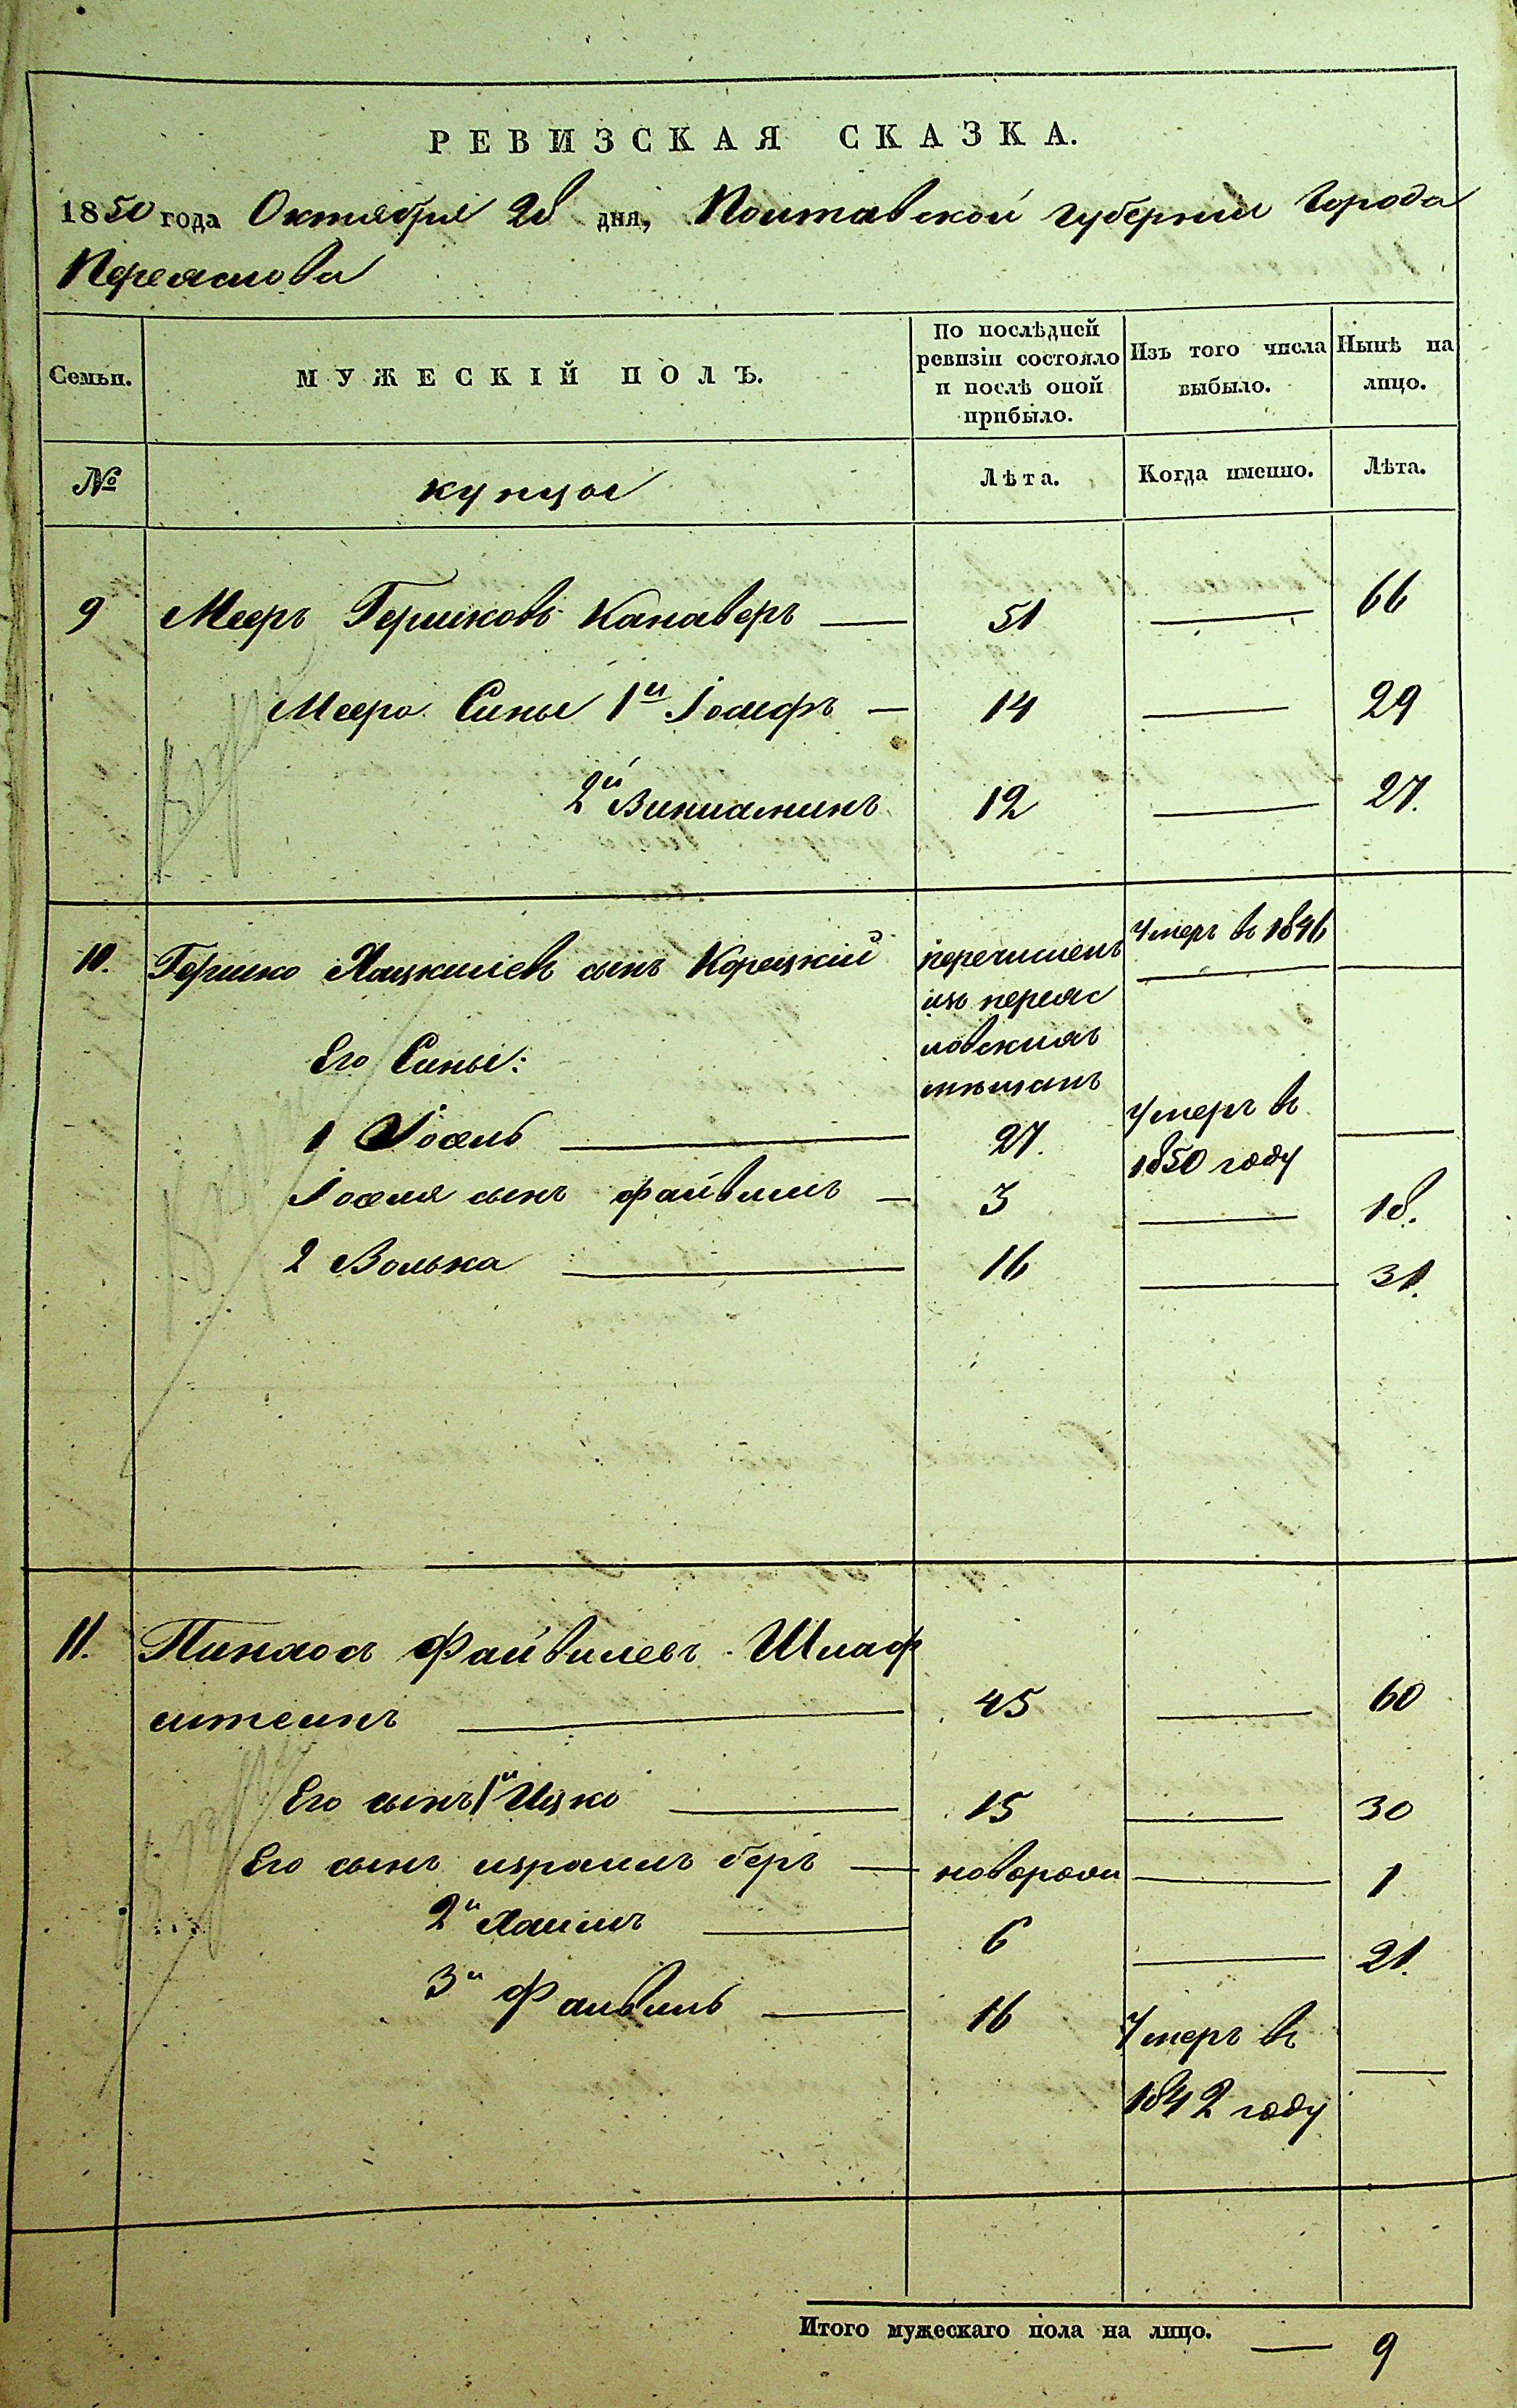 РЕВИЗСКАЯ СКАЗКА.
1850 года Октября 28 дня, Полтавской губернии Города
Переяслова
Семьи.
МУЖЕСКІЙ ПОЛЪ.
По послѣдней
ревизіи состояло
и послѣ оной
прибыло.
Изъ того числа
выбыло.
Нынѣ на
лицо.
№
купцы
Лѣта.
Когда именно.
Лѣта.
9 Мееръ Гершковъ Канаверъ — 51 — 66
Меера Сины 1й Іосифъ — 14 — 29
2й Вининаминъ 12 — 27.
10. Гершко Хацкилевъ сынъ Корецкій перечисленъ Умеръ въ 1846 —
изъ переяс
Его Сины: ловскихъ
мѣщанъ
1 Іосель — 27. Умеръ въ —
1850 году
Іоселя сынъ файвишъ — 3 — 18.
2 Волька — 16 — 31.
11. Пинхосъ Файвилевъ Шлаф
штейнъ — 45 — 60
Его сынъ 1й Ицко — 15 — 30
Его сынъ израиль беръ — новорожд — 1
2й Хаимъ — 6 — 21.
3й Файвишъ — 16 Умеръ въ —
1842 году
Итого мужескаго пола на лицо. — 9